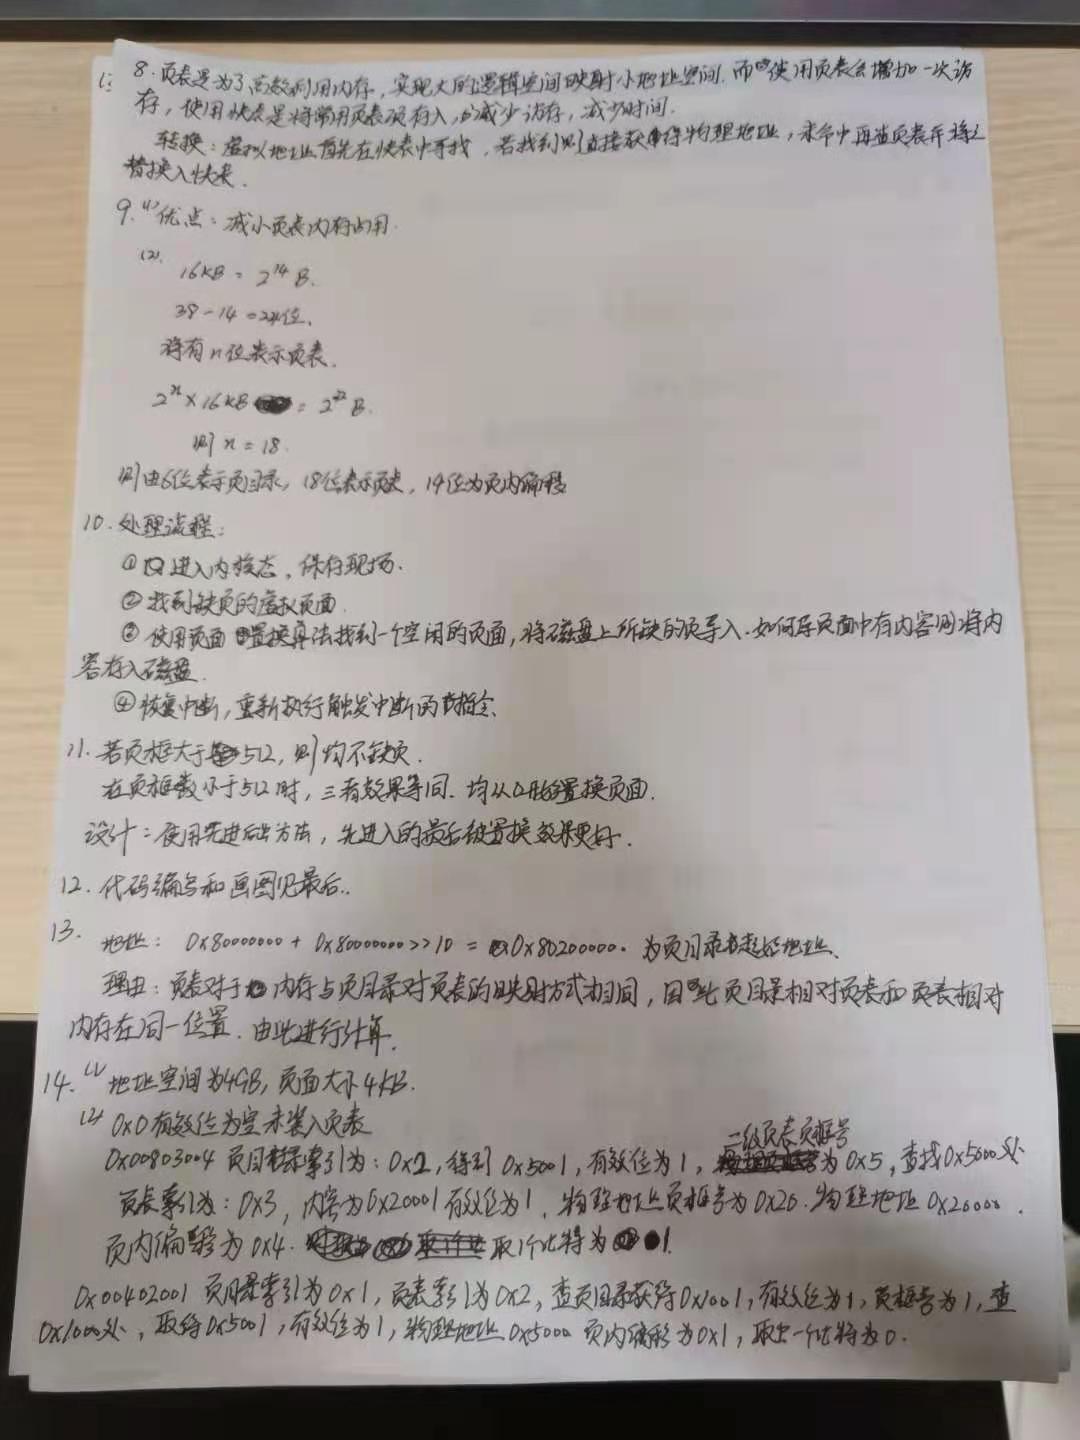 8. 页表是为了高效利用内存，实现大的逻辑空间映射小地址空间. 而使用页表会增加一次访
存，使用快表是将常用页表项存入，减少访存，减少时间.
转换：虚拟地址首先在快表中寻找，若找到则直接获得物理地址，未命中再查页表并将之
替换入快表.
9. (1) 优点：减小页表内存占用.
(2).
16KB = 2^14 B.
38-14=24位.
将有n位表示页表.
2^n × 16KB = 2^32 B.
则 n = 18.
则由6位表示页目录，18位表示页表，14位为页内偏移
10. 处理流程：
① 进入内核态，保存现场.
② 找到缺页的虚拟页面.
③ 使用页面置换算法找到一个空闲的页面，将磁盘上所缺的页导入. 如何导页面中有内容则将内
容存入磁盘.
④ 恢复中断，重新执行触发中断的指令.
11. 若页框大于512，则均不缺页.
在页框数小于512时，三者效果等同. 均从0开始置换页面.
设计：使用先进后出方法，先进入的最后被置换效果更好.
12. 代码编写和画图见最后..
13. 地址：0x80000000 + 0x80000000>>10 = 0x80200000. 为页目录起始地址.
理由：页表对于内存与页目录对页表的映射方式相同，因此页目录相对页表和页表相对
内存在同一位置. 由此进行计算.
14. (1) 地址空间为4GB，页面大小4KB.
(2) 0x0有效位为空未装入页表
二级页表页框号
0x00803004 页目录索引为：0x2，得到0x5001，有效位为1，为0x5，查找0x5000处
页表索引为：0x3，内容为0x20001有效位为1，物理地址页框号为0x20. 物理地址0x20000.
页内偏移为0x4. 取1个比特为1.
0x00402001 页目录索引为0x1，页表索引为0x2，查页目录获得0x1001，有效位为1，页框号为1，查
0x1000处，取得0x5001，有效位为1，物理地址0x5000 页内偏移为0x1，取出一个比特为0.